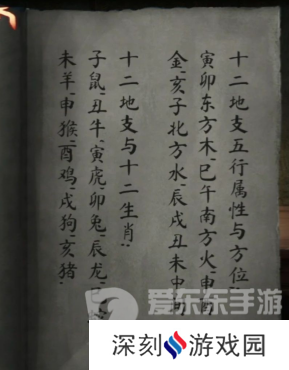 十二地支五行属性与方位
寅卯东方木、巳午南方火、申酉
金、亥子北方水、辰戌丑未中
十二地支与十二生肖
子鼠、丑牛、寅虎、卯兔、辰龙、巳
未羊、申猴、酉鸡、戌狗、亥猪
爱东东手游
深刻游戏园